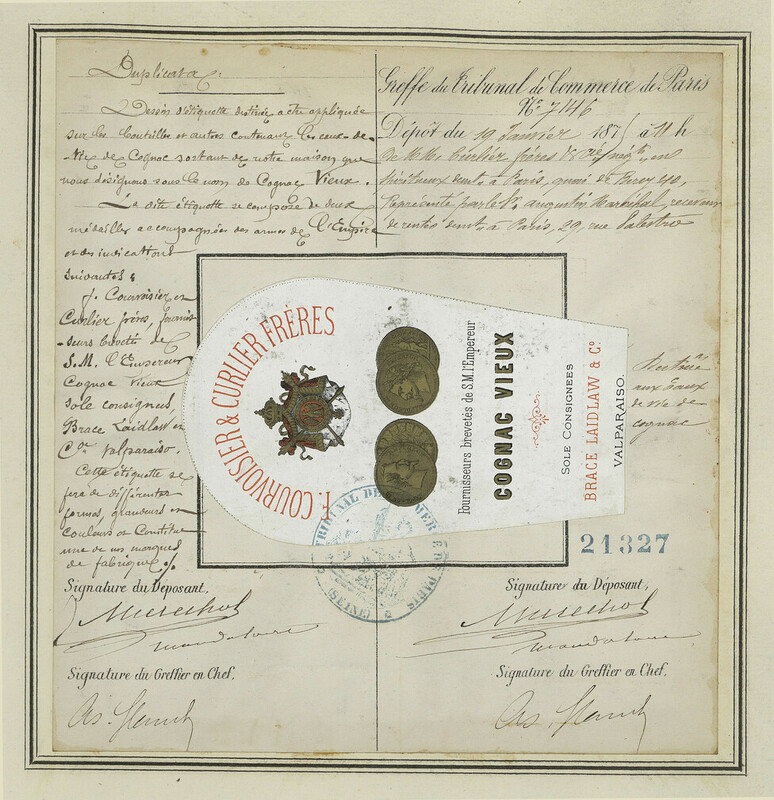 Duplicata:
Dessin d'étiquette destinée a être appliquée
sur les bouteilles et autres contenant les eaux-de-
Vie de Cognac sortant de notre maison que
nous désignons sous le nom de Cognac Vieux.
La dite étiquette se compose de deux
médailles accompagnées des armes de l'Empire
et des indications
suivantes:
J. Courvoisier et
Curlier frères, fournis-
seurs brevetés de
S.M. l'Empereur
Cognac Vieux
sole consignees,
Brace Laidlaw et
Cie Valparaiso.
Cette étiquette se
fera de différentes
formes, grandeurs et
couleurs et constitue
une de nos marques
de fabrique./.
Signature du Déposant,
Marechal
mandataire
Signature du Greffier en Chef,
Greffe du Tribunal de Commerce de Paris
No 7146
Dépôt du 19 Janvier 1875 à 11 h
de M.M. Curlier frères & Cie, négts. en
spiritueux demt. à Paris, quai de Bercy 40,
Représenté par le Sr. Augustin Maréchal, receveur
de rentes demt. à Paris, 29, rue
F. COURVOISIER & CURLIER FRÈRES
Fournisseurs brevetés de S.M. l'Empereur
COGNAC VIEUX
SOLE CONSIGNEES
BRACE LAIDLAW & Co.
VALPARAISO.
aux Eaux
de Vie de
cognac
21327
TRIBUNAL DE COMMERCE DE PARIS
(SEINE)
Signature du Déposant,
Marechal
mandataire
Signature du Greffier en Chef,